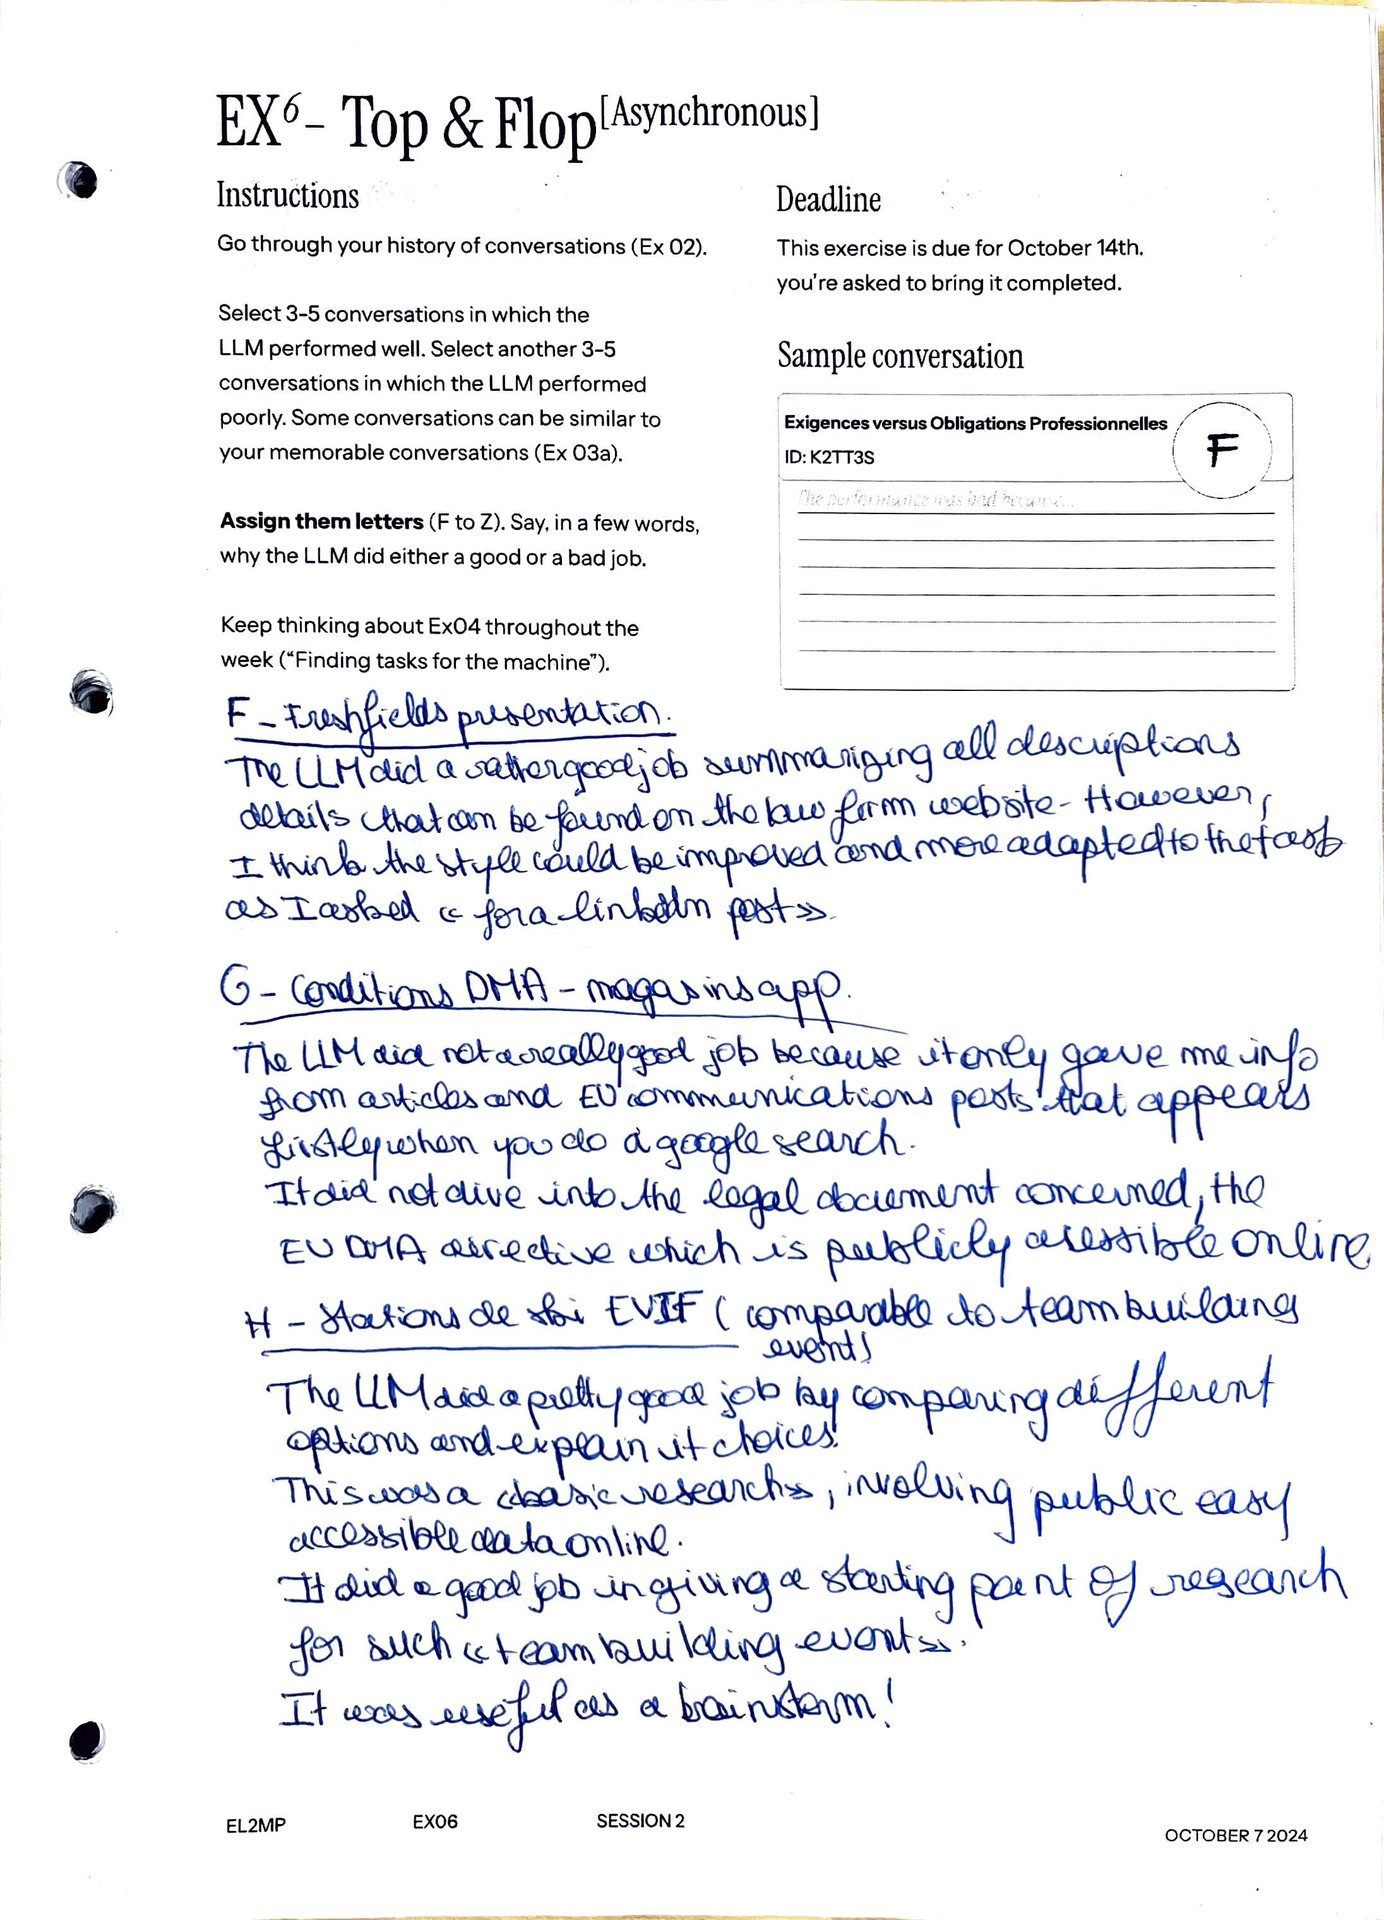 EX6 - Top & Flop [Asynchronous]
Instructions
Go through your history of conversations (Ex 02).
Select 3-5 conversations in which the
LLM performed well. Select another 3-5
conversations in which the LLM performed
poorly. Some conversations can be similar to
your memorable conversations (Ex 03a).
Assign them letters (F to Z). Say, in a few words,
why the LLM did either a good or a bad job.
Keep thinking about Ex04 throughout the
week (“Finding tasks for the machine”).
Deadline
This exercise is due for October 14th.
you're asked to bring it completed.
Sample conversation
Exigences versus Obligations Professionnelles
ID: K2TT3S
F
The performance was bad because...
F - Freshfields presentation.
The LLM did a rather good job summarizing all descriptions
details that can be found on the law firm website - However,
I think the style could be improved and more adapted to the task
as I asked « for a linkedIn post ».
G - Conditions DMA - magasins app.
The LLM did not a really good job because it only gave me info
from articles and EU communications posts that appears
firstly when you do a google search.
It did not dive into the legal document concerned, the
EU DMA directive which is publicly acessible online
H - Stations de ski EVJF (comparable to team buildings
event)
The LLM did a pretty good job by comparing different
options and explain it choices.
This was a « basic research », involving public easy
accessible data online.
It did a good job in giving a starting point of research
for such « team building event ».
It was useful as a brainstorm!
EL2MP EX06 SESSION 2 OCTOBER 7 2024